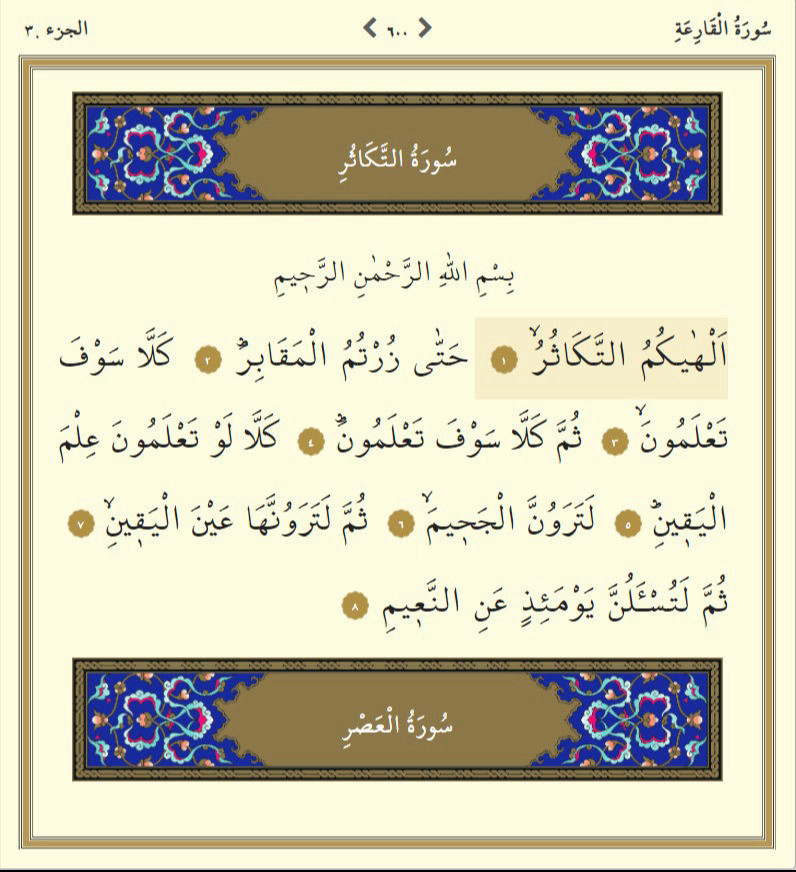 سُورَةُ الْقَارِعَةِ
٦٠٠
الجزء ٣٠
سُورَةُ التَّكَاثُرِ
بِسْمِ اللّٰهِ الرَّحْمٰنِ الرَّحِيمِ
اَلْهٰيكُمُ التَّكَاثُرُۙ ١ حَتّٰى زُرْتُمُ الْمَقَابِرَۜ ٢ كَلَّا سَوْفَ
تَعْلَمُونَۙ ٣ ثُمَّ كَلَّا سَوْفَ تَعْلَمُونَۜ ٤ كَلَّا لَوْ تَعْلَمُونَ عِلْمَ
الْيَقِينِۜ ٥ لَتَرَوُنَّ الْجَحِيمَۙ ٦ ثُمَّ لَتَرَوُنَّهَا عَيْنَ الْيَقِينِۙ ٧
ثُمَّ لَتُسْـَٔلُنَّ يَوْمَئِذٍ عَنِ النَّعِيمِ ٨
سُورَةُ الْعَصْرِ